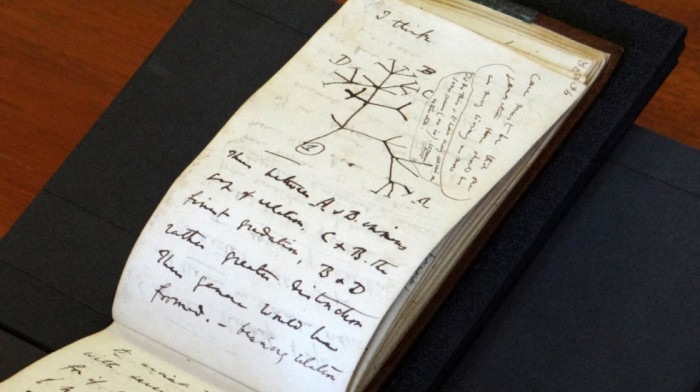 I think
Case must be
that one generation
then should be
as many living as
now
To do this & to have
many species in
same genus (as is)
requires extinction
D
B
C
A
1
Thus between A & B. immens
gap of relation. C & B. the
finest gradation, B & D
rather greater distinction
Thus genera would be
formed. — bearing relation